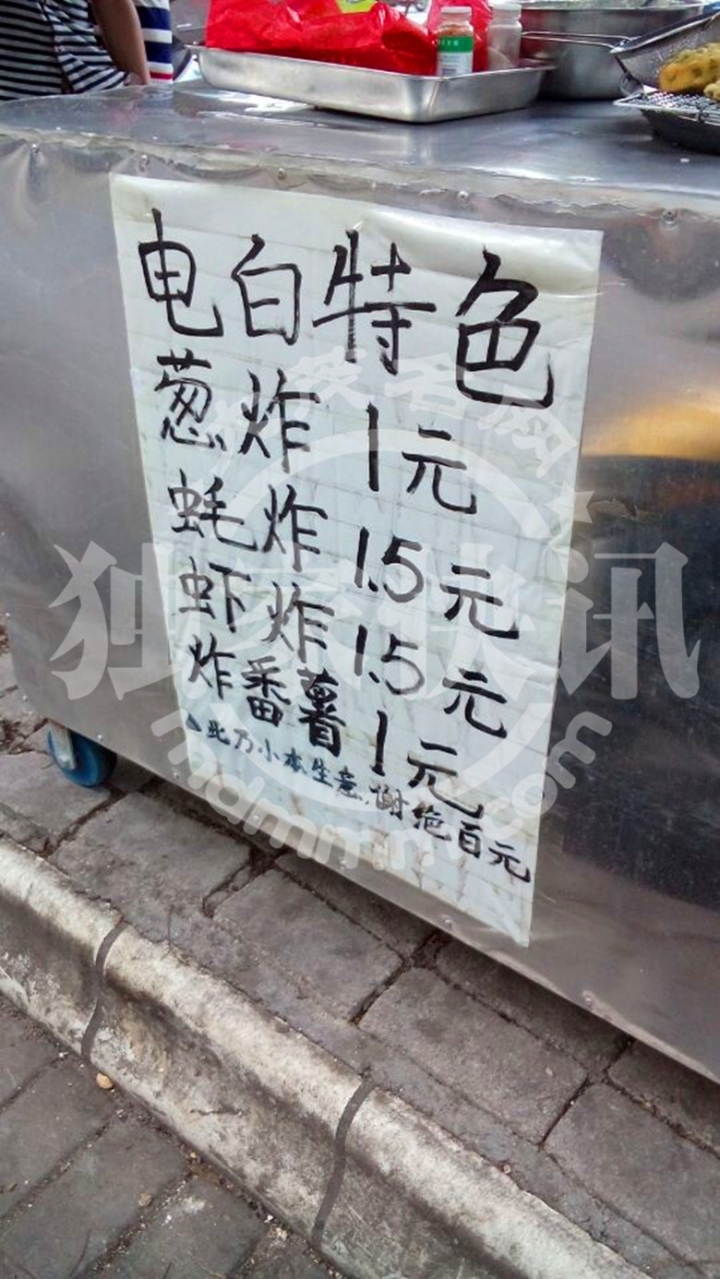 电白特色
葱炸 1元
蚝炸 1.5元
虾炸 1.5元
炸番薯 1元
▲此乃小本生意,谢绝百元
独家快讯
mdmmm.com